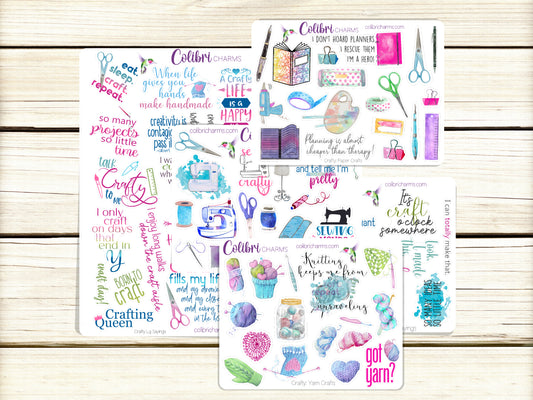 Colibri CHARMS
colibricharms.com
I DON'T HOARD PLANNERS,
I RESCUE THEM
I'M A HERO!
Planning is almost
cheaper than therapy!
Crafty: Paper Crafts
Colibri CHARMS
colibricharms.com
eat.
sleep.
craft.
repeat.
When life
gives you
hands
make handmade
A Crafty
LIFE
IS A
HAPPY
so many
projects
so little
time
creativity is
contagious
pass it
talk
Crafty
to me
I only
craft
on days
that
end in
Y
enjoying walks
down the craft aisle
craft diva!
BORN TO
craft
Crafting
Queen
Crafty: LA Sayings
fills my life
and my
and my
and every
colibricharms.com
crafty
and tell me I'm
pretty
SEWING
colibricharms.com
It's
craft
o'clock
somewhere
I can totally make that.
look,
SO MANY IDEAS
SO LITTLE TIME
Colibri CHARMS
Knitting
keeps me from
unraveling
got
yarn?
colibricharms.com
Crafty: Yarn Crafts